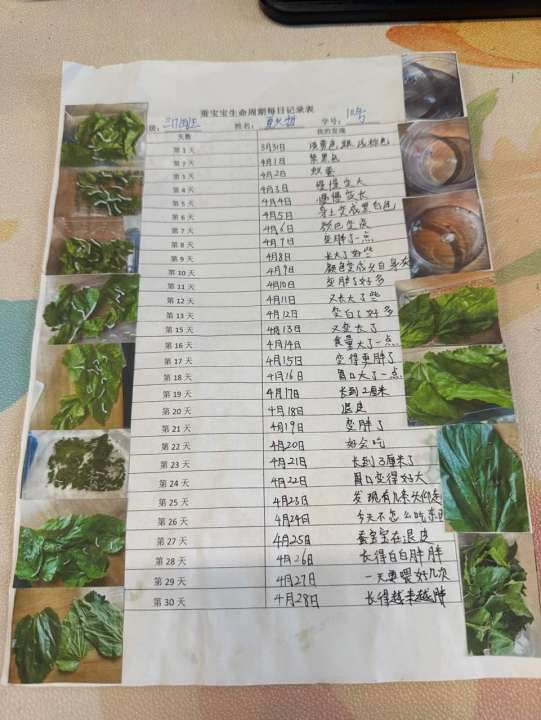 蚕宝宝生命周期每日记录表
级: 姓名: 学号: 12号
天数 我的发现
第 1 天 3月31日 淡黄色跟浅粉色
第 2 天 4月1日 紫黑色
第 3 天 4月2日 蚁蚕
第 4 天 4月3日 慢慢变大
第 5 天 4月4日 慢慢变长
第 6 天 4月5日 身上变成黑白色
第 7 天 4月6日 颜色变浅
第 8 天 4月7日 变胖了一点
第 9 天 4月8日 长大了好些
第 10 天 4月9日 颜色变成
第 11 天 4月10日 变胖了好多
第 12 天 4月11日 又长大了些
第 13 天 4月12日 变白了好多
第 15 天 4月13日 又变长了
第 16 天 4月14日 食量大了一点
第 17 天 4月15日 变得更胖了
第 18 天 4月16日 胃口大了一点
第 19 天 4月17日 长到2厘米
第 20 天 4月18日 退皮
第 21 天 4月19日 变胖了
第 22 天 4月20日 好会吃
第 23 天 4月21日 长到3厘米了
第 24 天 4月22日 胃口变得好大
第 25 天 4月23日 发现有几条头仰起
第 26 天 4月24日 今天不怎么吃东
第 27 天 4月25日 蚕宝宝在退皮
第 28 天 4月26日 长得白白胖胖
第 29 天 4月27日 一天要喂好几次
第 30 天 4月28日 长得越来越胖